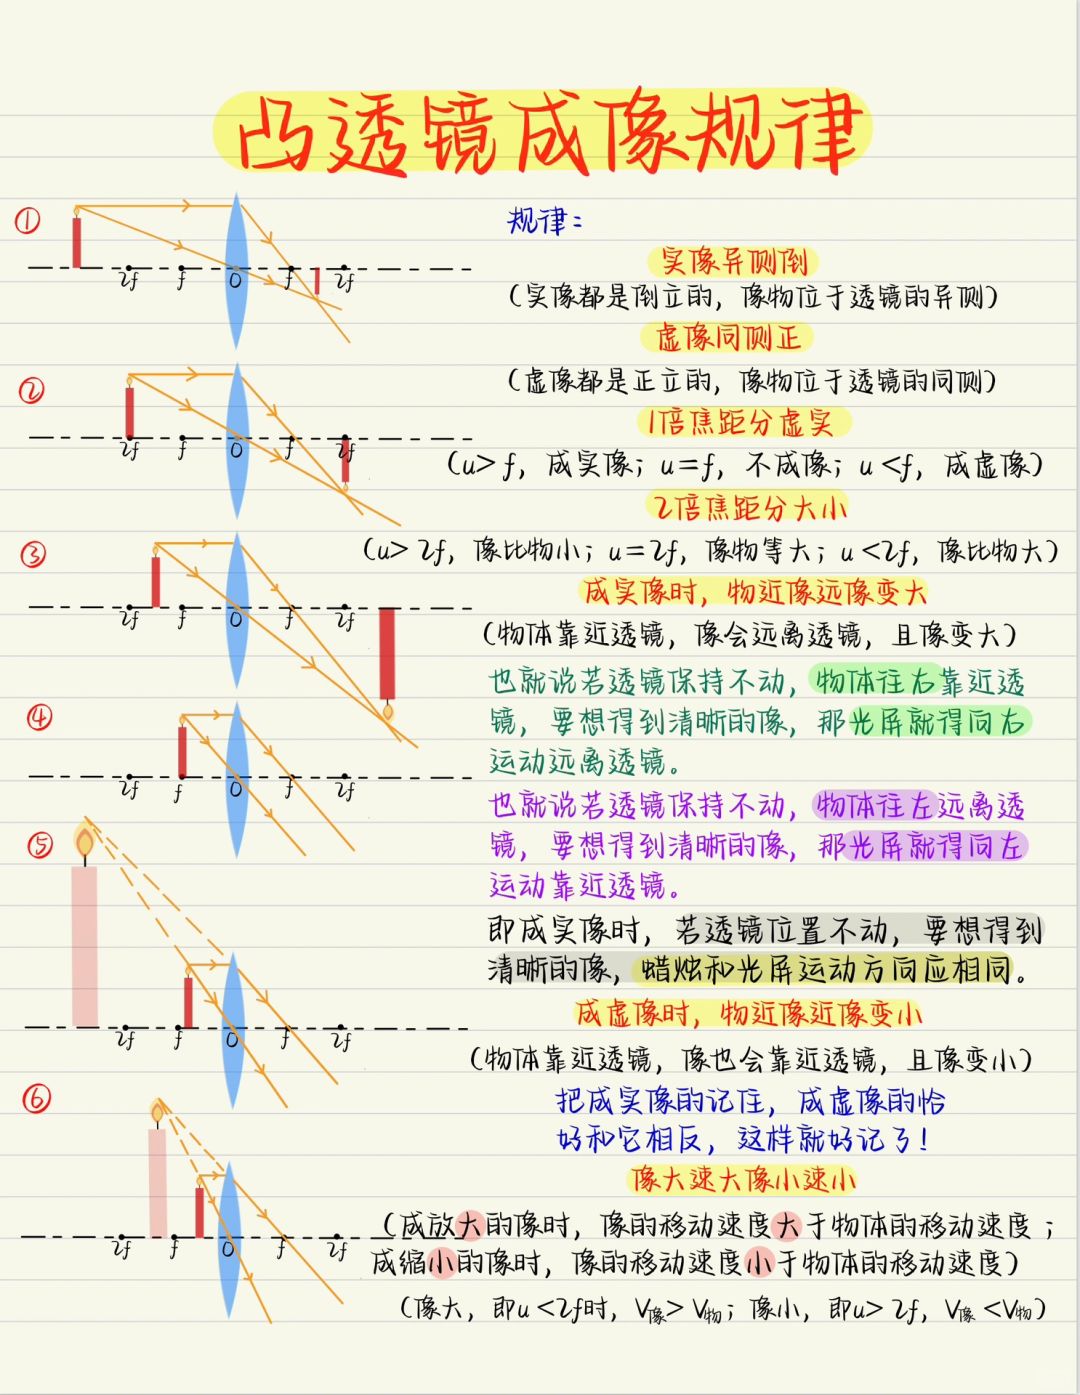 凸透镜成像规律
①
2f f O f 2f
规律：
实像异侧倒
（实像都是倒立的，像物位于透镜的异侧）
虚像同侧正
（虚像都是正立的，像物位于透镜的同侧）
②
2f f O f 2f
1倍焦距分虚实
（u>f，成实像；u=f，不成像；u<f，成虚像）
2倍焦距分大小
（u>2f，像比物小；u=2f，像物等大；u<2f，像比物大）
③
2f f O f 2f
成实像时，物近像远像变大
（物体靠近透镜，像会远离透镜，且像变大）
也就说若透镜保持不动，物体往右靠近透
镜，要想得到清晰的像，那光屏就得向右
运动远离透镜。
④
2f f O f 2f
也就说若透镜保持不动，物体往左远离透
镜，要想得到清晰的像，那光屏就得向左
运动靠近透镜。
⑤
2f f O f 2f
即成实像时，若透镜位置不动，要想得到
清晰的像，蜡烛和光屏运动方向应相同。
成虚像时，物近像近像变小
（物体靠近透镜，像也会靠近透镜，且像变小）
⑥
2f f O f 2f
把成实像的记住，成虚像的恰
好和它相反，这样就好记了！
像大速大像小速小
（成放大的像时，像的移动速度大于物体的移动速度；
成缩小的像时，像的移动速度小于物体的移动速度）
（像大，即u<2f时，V像>V物；像小，即u>2f，V像<V物）